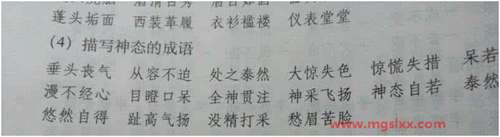 蓬头垢面 西装革履 衣衫褴褛 仪表堂堂
(4) 描写神态的成语
垂头丧气 从容不迫 处之泰然 大惊失色 惊慌失措 呆若
漫不经心 目瞪口呆 全神贯注 神采飞扬 神态自若 泰然
悠然自得 趾高气扬 没精打采 愁眉苦脸
www.mgslxx.com